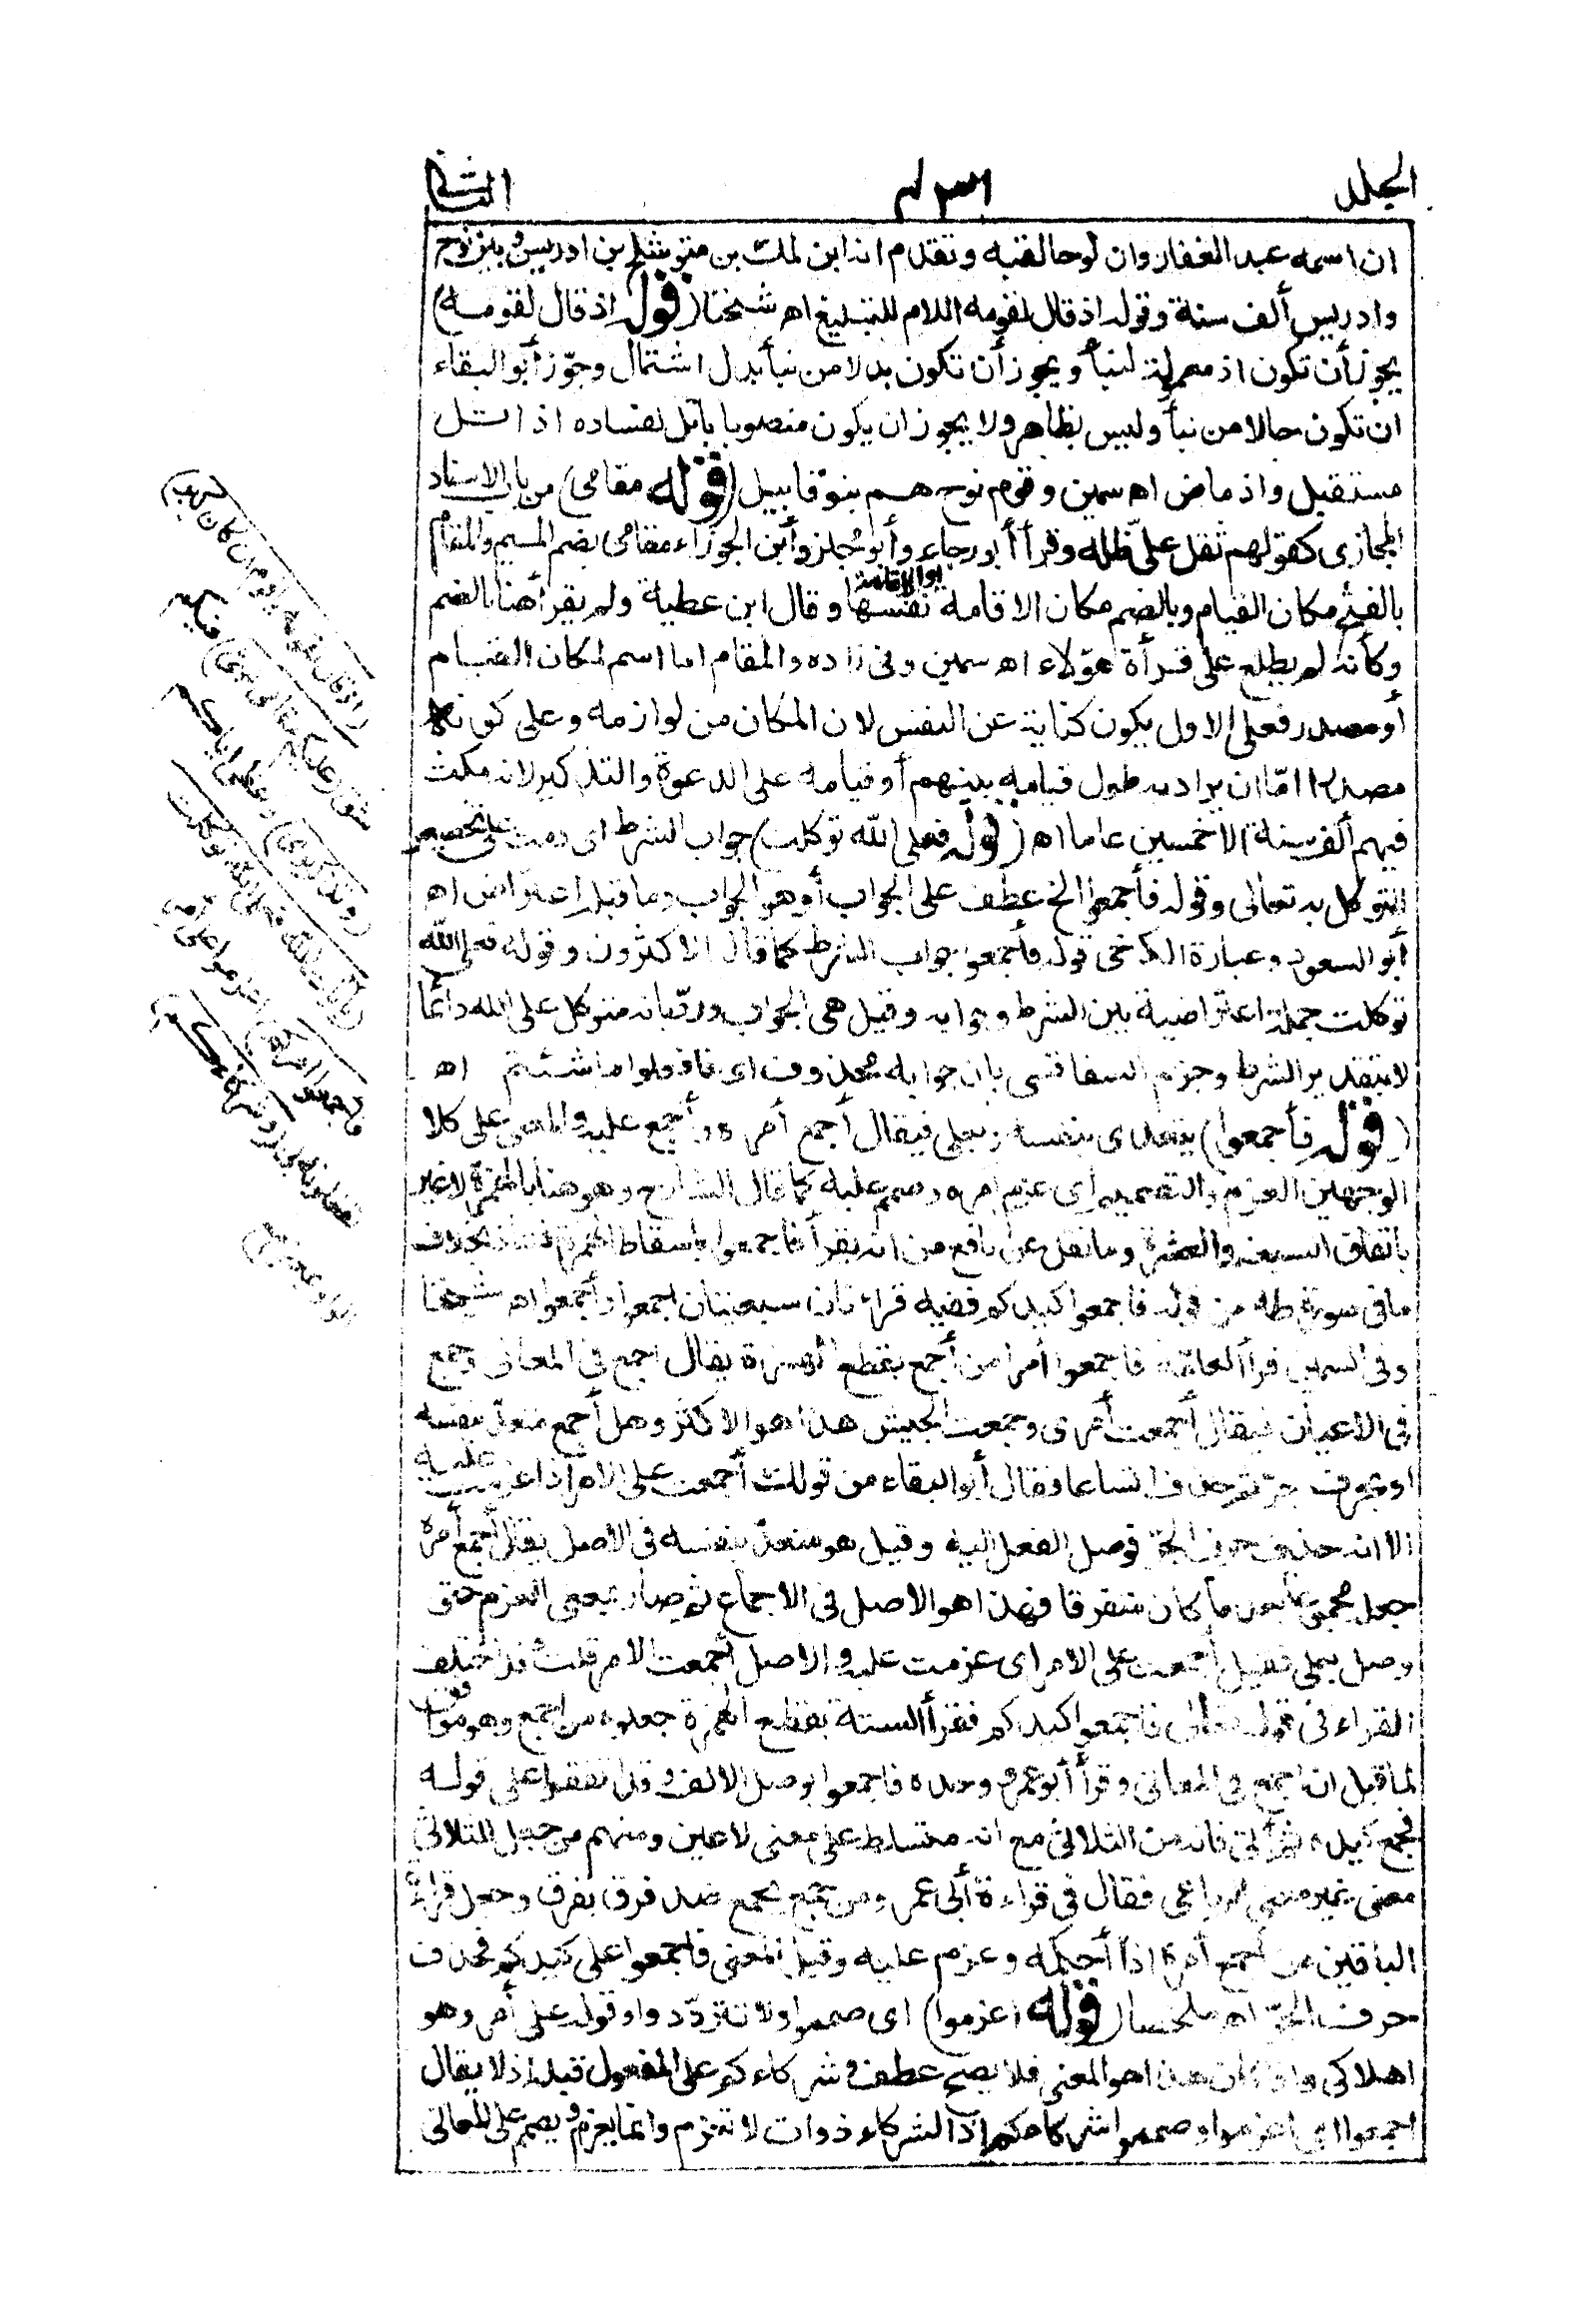 المجلد ٣٣١ الثانى
ان اسمه عبد الغفار وان نوحا لقبه وتقدم انه ابن لمك بن متوشلخ بن ادريس وبين نوح
وادريس ألف سنة وقوله اذ قال لقومه اللام للتبليغ اه شيخنا (قوله اذ قال لقومه)
يجوز أن تكون اذ معمولة لنبأ ويجوز أن تكون بدلا من نبأ بدل اشتمال وجوّز أبو البقاء
ان تكون حالا من نبأ وليس بظاهر ولا يجوز ان يكون منصوبا باتل لفساده اذ اتل
مستقبل واذ ماض اه سمين وقوم نوح هم بنو قابيل (قوله مقامى) من باب الاسناد
المجازى كقولهم ثقل علىّ ظله وقرأ أبو رجاء وأبو مجلز وأبن الجوزاء مقامى بضم الميم والمقام
بالفتح مكان القيام وبالضم مكان الاقامة أو الاقامة نفسها وقال ابن عطية ولم يقرأ هنا بالضم
وكأنه لم يطلع على قرأة هؤلاء اه سمين وفى زاده والمقام اما اسم لمكان القيام
أو مصدر فعلى الاول يكون كناية عن النفس لان المكان من لوازمه وعلى كونه
مصدرا امّا ان يراد به طول قيامه بينهم أو قيامه على الدعوة والتذكير لانه مكث
فيهم ألف سنة الا خمسين عاما اه (قوله فعلى الله توكلت) جواب الشرط اى دمت على تخصيص
التوكل به تعالى وقوله فأجمعوا الخ عطف على الجواب أو هو الجواب وما قبله اعتراض اه
أبو السعود وعبارة الكرخى قوله فأجمعوا جواب الشرط كما قال الاكثرون وقوله فعلى الله
توكلت جملة اعتراضية بين الشرط وجوابه وقيل هى الجواب وردّ بانه متوكل على الله دائما
لا بتقدير الشرط وجزم السفاقسى بان جوابه محذوف اى فافعلوا ما شئتم اه
(قوله فأجمعوا) يتعدى بنفسه وبعلى فيقال أجمع أمره وأجمع عليه والمعنى على كلا
الوجهين العزم والتصميم اى عزم امره وصمم عليه كما قال الشارح وهو هنا بالهمزة لا غير
باتفاق السبعة والعشرة وما نقل عن نافع من انه يقرأ فاجمعوا باسقاط الهمزة فشاذ بخلاف
ما فى سورة طه من قوله فاجمعوا كيدكم ففيه قراءتان سبعيتان اجمعوا وأجمعوا اه شيخنا
وفى السمين قرأ العامّة فاجمعوا أمرا من أجمع بقطع الهمزة يقال اجمع فى المعانى وجمع
فى الاعيان فيقال أجمعت أمرى وجمعت الجيش هذا هو الاكثر وهل أجمع متعدّ بنفسه
او بحرف جرّ ثم حذف اتساعا فقال أبو البقاء من قولك أجمعت على الامر اذا عزمت عليه
الا انه حذف حرف الجرّ فوصل الفعل اليه وقيل هو متعدّ بنفسه فى الاصل يقال أجمع أمره
جعله مجموعا بعد ما كان متفرقا فهذا هو الاصل فى الاجماع ثم صار بمعنى العزم حتى
وصل بعلى فقيل أجمعت على الامر اى عزمت عليه والاصل أجمعت الامر قلت قد اختلف
القراء فى قوله تعالى فاجمعوا كيدكم فقرأ الستة بقطع الهمزة جعلوه من اجمع وهو موافق
لما قيل ان اجمع فى المعانى وقرأ أبو عمرو وحده فاجمعوا بوصل الالف وقد اتفقوا على قوله
فجمع كيده ثم أتى فانه من الثلاثى مع انه متسلط على معنى لا عين ومنهم من جعل للثلاثى
معنى غير معنى الرباعى فقال فى قراءة أبى عمرو من جمع يجمع ضد فرق يفرق وجعل قراءة
الباقين من أجمع أمره اذا أحكمه وعزم عليه وقيل المعنى فاجمعوا على كيدكم فحذف
حرف الجرّ اه ملخصا (قوله اعزموا) اى صمموا ولا تتردّدوا وقوله على أمر وهو
اهلاكى واذا كان هذا هو المعنى فلا يصح عطف وشركاءكم على المفعول قبله اذ لا يقال
اجمعوا اى اعزموا وصمموا شركاءكم اذ الشركاء ذوات لا تعزم وانما يعزم ويصمم على المعانى